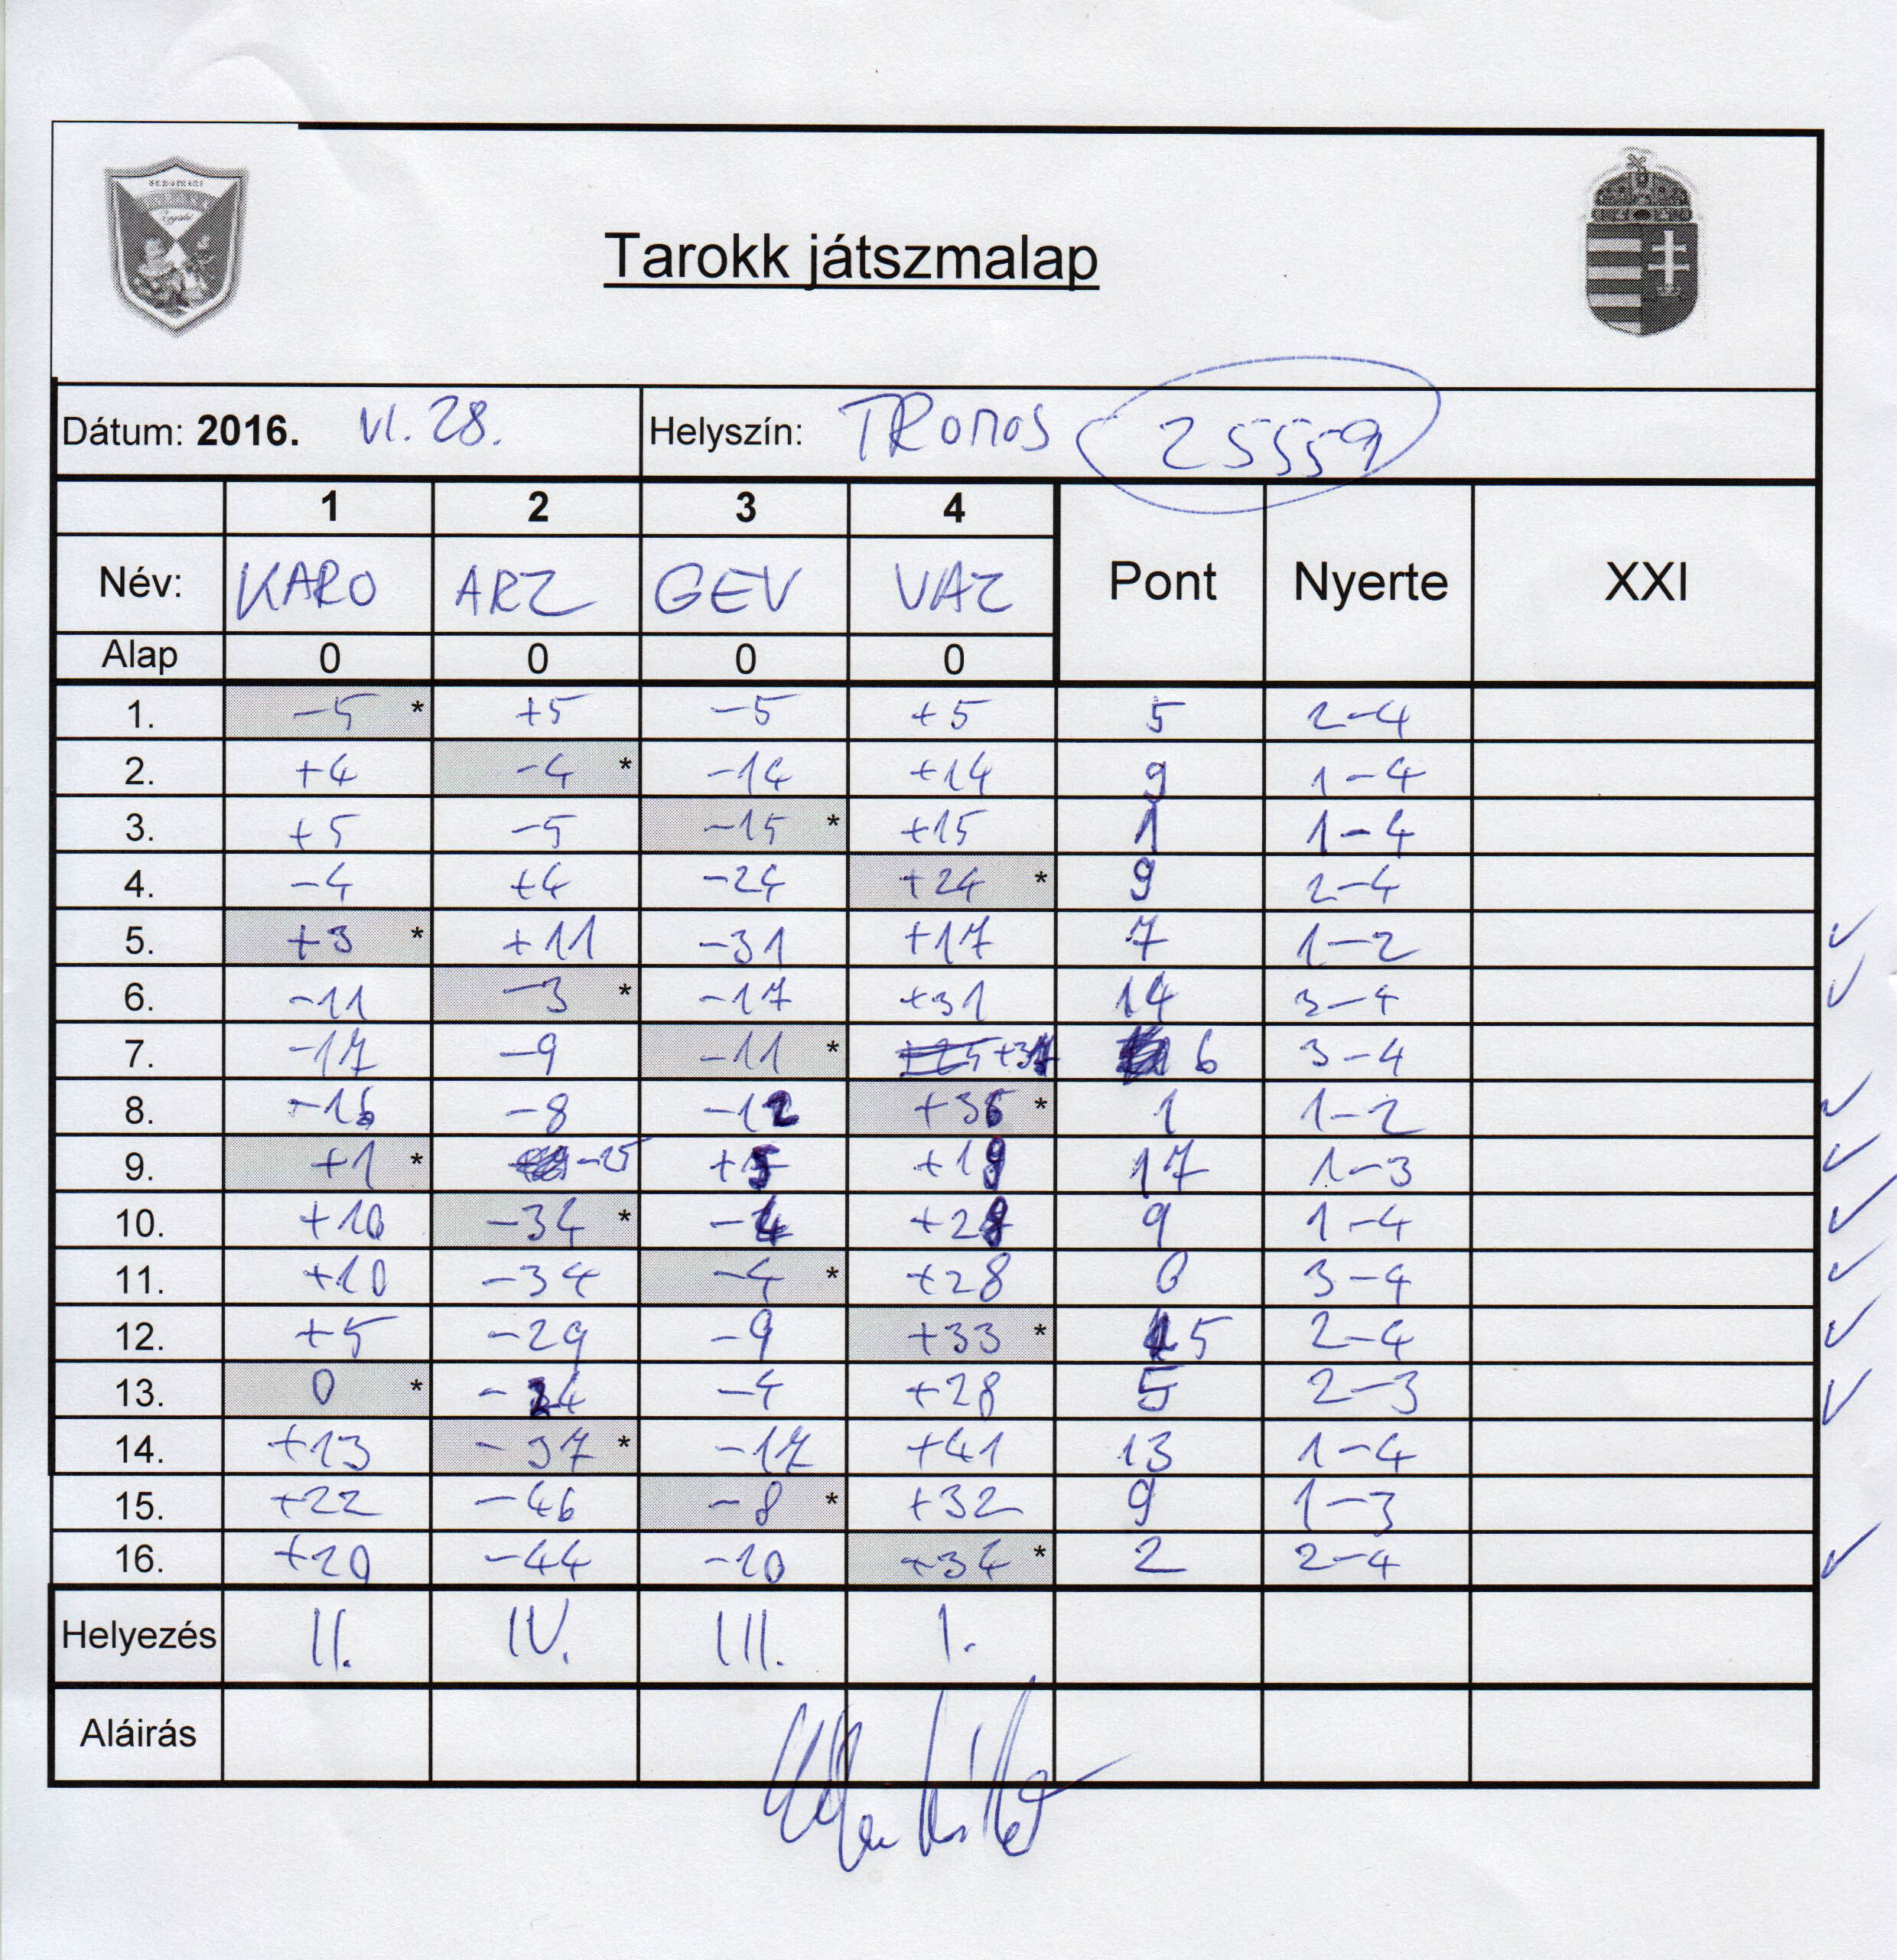 Tarokk játszmalap
Dátum: 2016. VI. 28. Helyszín: TROMOS 25559
1 2 3 4 Pont Nyerte XXI
Név: KARO ARZ GEV VAZ
Alap 0 0 0 0
1. -5 * +5 -5 +5 5 2-4
2. +4 -4 * -14 +14 9 1-4
3. +5 -5 -15 * +15 1 1-4
4. -4 +4 -24 +24 * 9 2-4
5. +3 * +11 -31 +17 7 1-2 ✓
6. -11 -3 * -17 +31 14 3-4 ✓
7. -17 -9 -11 * +37 6 3-4
8. -16 -8 -12 +36 * 1 1-2 ✓
9. +1 * -25 +5 +19 17 1-3 ✓
10. +10 -34 * -4 +28 9 1-4 ✓
11. +10 -34 -4 * +28 0 3-4 ✓
12. +5 -29 -9 +33 * 5 2-4 ✓
13. 0 * -24 -4 +28 5 2-3 ✓
14. +13 -37 * -17 +41 13 1-4
15. +22 -46 -8 * +32 9 1-3
16. +20 -44 -10 +34 * 2 2-4 ✓
Helyezés II. IV. III. I.
Aláirás